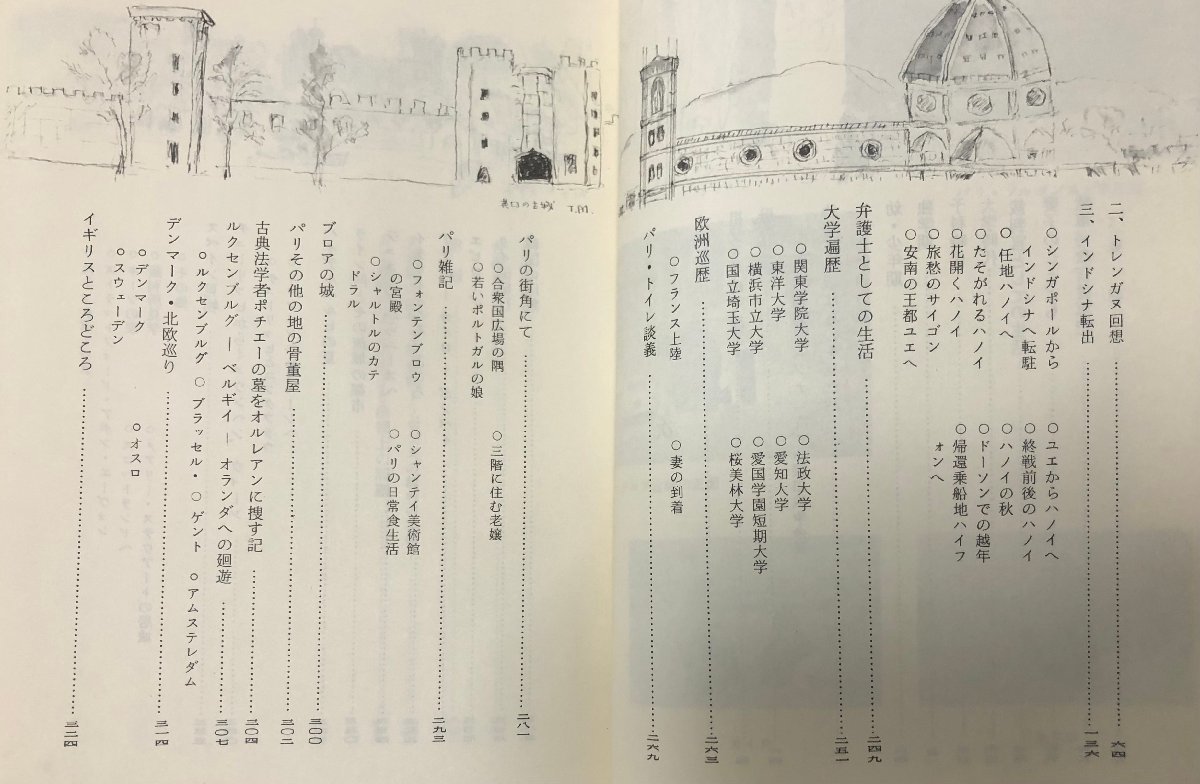 二、トレンガヌ回想……六四
三、インドシナ転出……一三六
○シンガポールから
インドシナへ転駐
○任地ハノイへ
○たそがれるハノイ
○花開くハノイ
○旅愁のサイゴン
○安南の王都ユエへ
○ユエからハノイへ
○終戦前後のハノイ
○ハノイの秋
○ドーソンでの越年
○帰還乗船地ハイフ
ォンへ
弁護士としての生活……二四九
大学遍歴……二五一
○関東学院大学
○東洋大学
○横浜市立大学
○国立埼玉大学
○法政大学
○愛知大学
○愛国学園短期大学
○桜美林大学
欧洲巡歴……二六三
○フランス上陸
○妻の到着
パリ・トイレ談義……二六九
パリの街角にて……二八一
○合衆国広場の隅
○若いポルトガルの娘
○三階に住む老嬢
パリ雑記……二九三
○フォンテンブロウ
の宮殿
○シャルトルのカテ
ドラル
○シャンテイ美術館
○パリの日常食生活
ブロアの城……三〇〇
パリその他の地の骨董屋……三〇二
古典法学者ポチエーの墓をオルレアンに捜す記……三〇四
ルクセンブルグ ― ベルギイ ― オランダへの廻遊……三〇七
○ルクセンブルグ ○ブラッセル・○ゲント ○アムステレダム
デンマーク・北欧巡り……三一四
○デンマーク
○スウェーデン
○オスロ
イギリスところどころ……三二四
T.M.